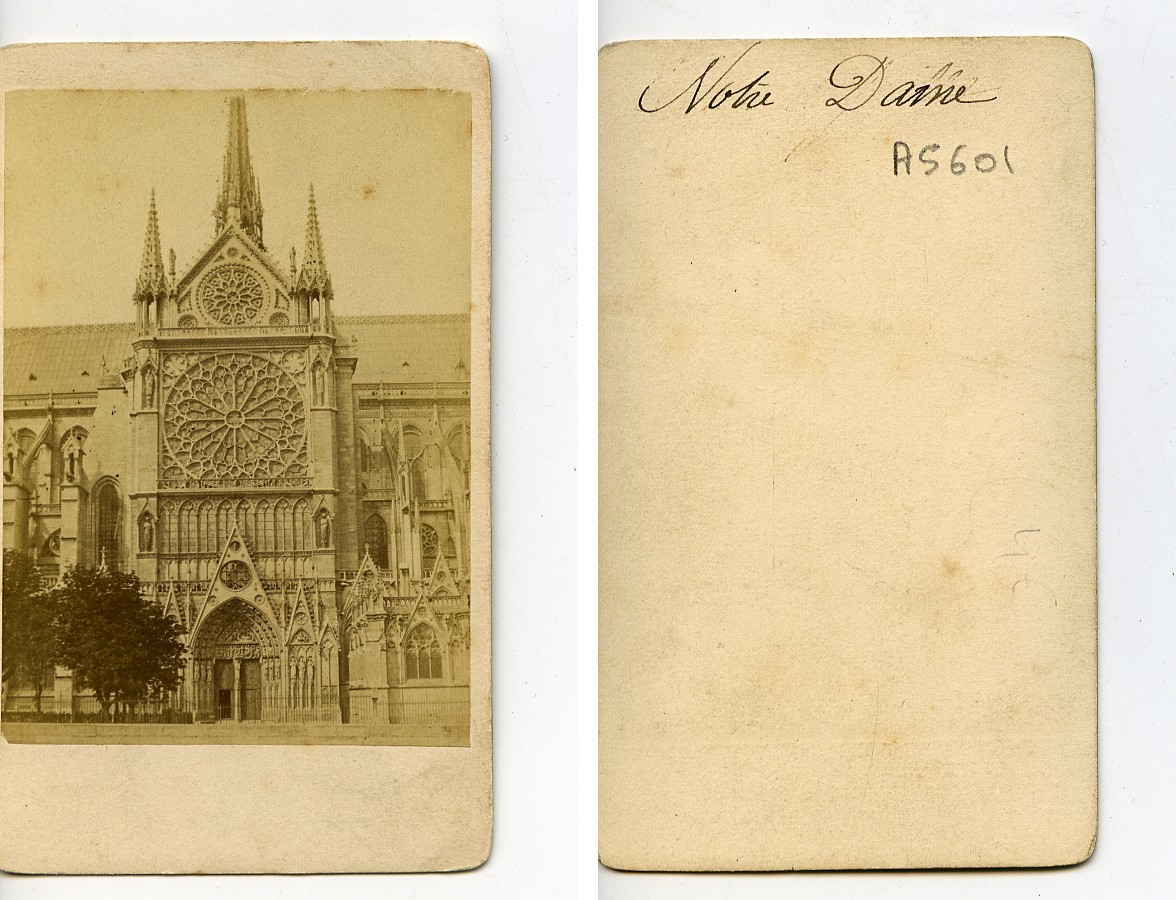 Notre Dame
A5601